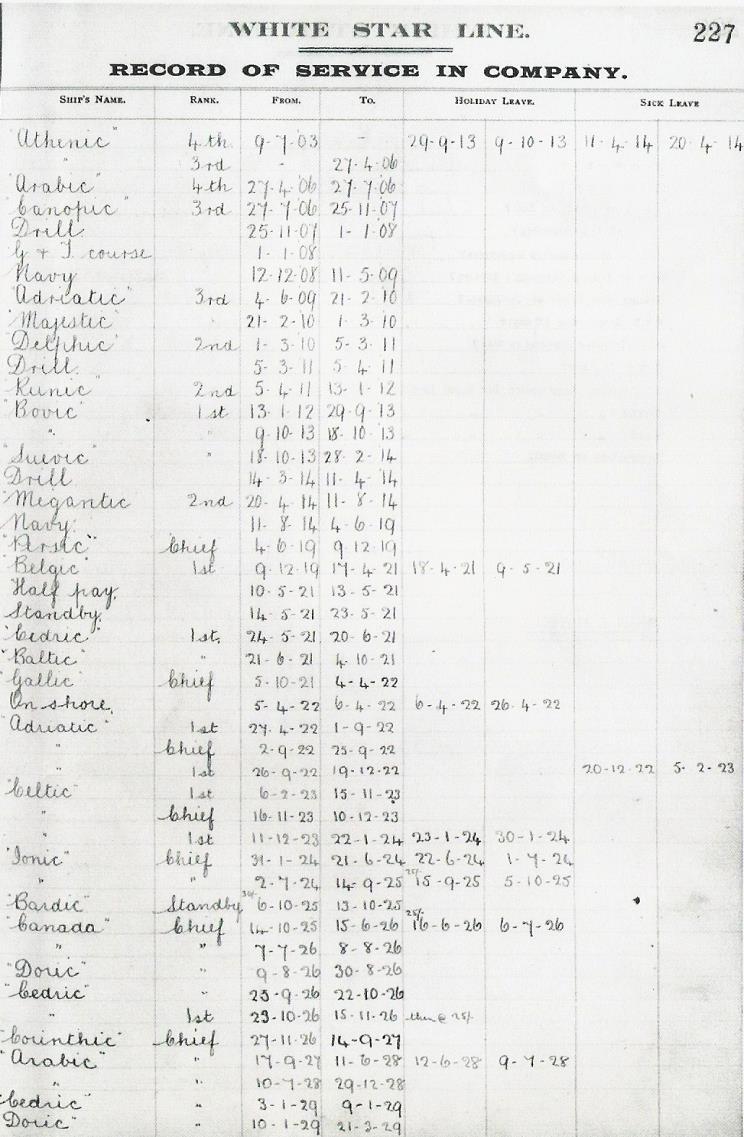 WHITE STAR LINE. 227
RECORD OF SERVICE IN COMPANY.
SHIP'S NAME. RANK. FROM. TO. HOLIDAY LEAVE. SICK LEAVE
"Athenic" 4th 9-7-03 - 29-9-13 9-10-13 11-4-14 20-4-14
" 3rd - 27-4-06
"Arabic" 4th 27-4-06 27-7-06
"Canopic" 3rd 27-7-06 25-11-07
Drill 25-11-07 1-1-08
G & T. course 1-1-08
Navy 12-12-08 11-5-09
"Adriatic" 3rd 4-6-09 21-2-10
"Majestic" " 21-2-10 1-3-10
"Delphic" 2nd 1-3-10 5-3-11
Drill 5-3-11 5-4-11
"Runic" 2nd 5-4-11 13-1-12
"Bovic" 1st 13-1-12 29-9-13
" " 9-10-13 18-10-13
"Suevic" " 18-10-13 28-2-14
Drill 14-3-14 11-4-14
"Megantic 2nd 20-4-14 11-8-14
Navy. 11-8-14 4-6-19
"Persic" Chief 4-6-19 9-12-19
"Belgic" 1st 9-12-19 17-4-21 18-4-21 9-5-21
Half pay. 10-5-21 13-5-21
Standby. 14-5-21 23-5-21
"Cedric" 1st. 24-5-21 20-6-21
"Baltic" " 21-6-21 4-10-21
"Gallic" Chief 5-10-21 4-4-22
On shore. 5-4-22 6-4-22 6-4-22 26-4-22
"Adriatic" 1st 27-4-22 1-9-22
" Chief 2-9-22 25-9-22
" 1st 26-9-22 19-12-22 20-12-22 5-2-23
"Celtic" 1st 6-2-23 15-11-23
" Chief 16-11-23 10-12-23
" 1st 11-12-23 22-1-24 23-1-24 30-1-24
"Ionic" Chief 31-1-24 21-6-24 22-6-24 1-7-24
" " 2-7-24 14-9-25 15-9-25 5-10-25
"Bardic" Standby 6-10-25 13-10-25
"Canada" Chief 14-10-25 15-6-26 16-6-26 6-7-26
" " 7-7-26 8-8-26
"Doric" " 9-8-26 30-8-26
"Cedric" " 23-9-26 22-10-26
" 1st 23-10-26 15-11-26
"Corinthic" Chief 27-11-26 14-9-27
"Arabic" " 17-9-27 11-6-28 12-6-28 9-7-28
" " 10-7-28 29-12-28
"Cedric" " 3-1-29 9-1-29
"Doric" " 10-1-29 21-3-29